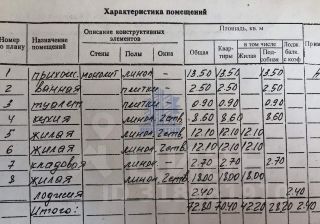 Характеристика помещений
Номер по плану | Назначение помещений | Описание конструктивных элементов | Площадь, кв. м
Стены | Полы | Окна | Общая | Квартиры | в том числе | Лодж. балк.
Жилая | Подсобная
1 прихож. линол – 13.50 13.50 13.50
2 ванная плитки – 2.50 2.50 2.50
3 туалет плитки – 0.90 0.90 0.90
4 кухня линол 2ств. 8.60 8.60 8.60
5 жилая линол 2ств. 12.10 12.10 12.10
6 жилая линол 2ств. 12.10 12.10 12.10
7 кладовая линол – 2.70 2.70 2.70
8 жилая линол 2ств. 18.00 18.00 18.00
лоджия 2.40 2.40
Итого: 72.80 70.40 42.20 28.20 2.40